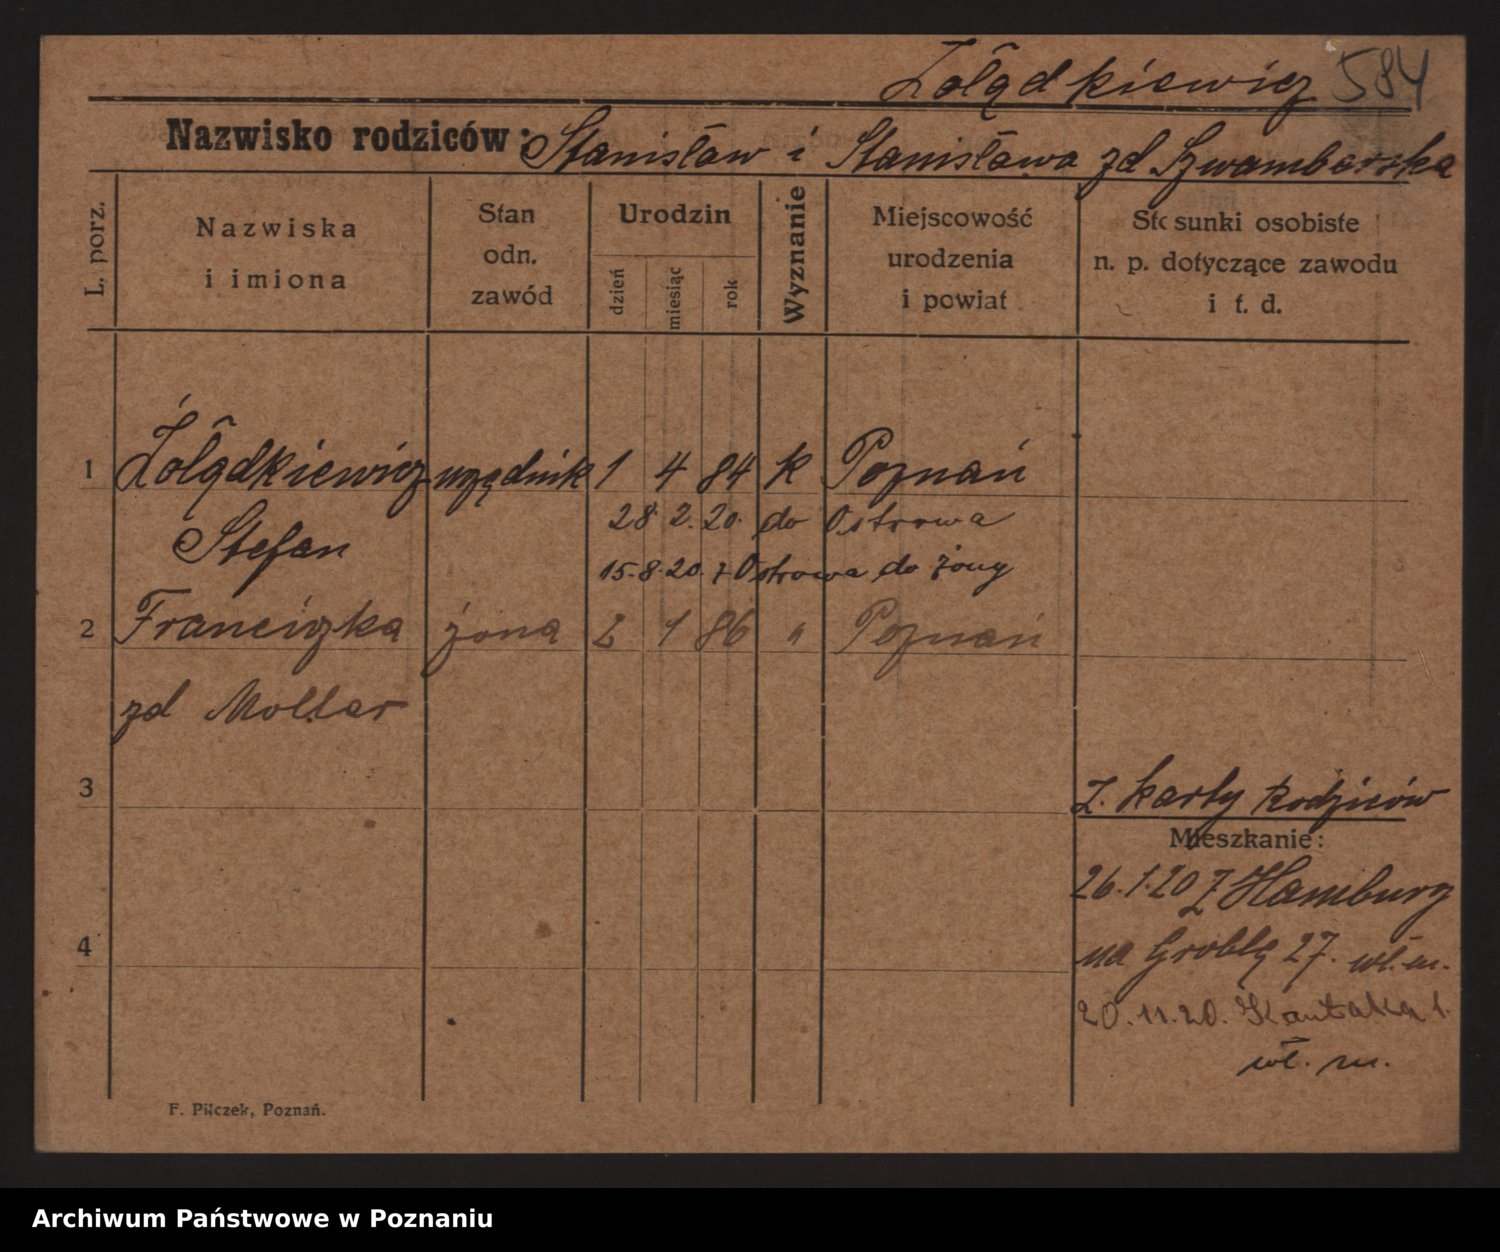 Żołądkiewicz 584
Nazwisko rodziców: Stanisław i Stanisława zd Szwamberska
L. porz.
Nazwiska i imiona
Stan odn. zawód
Urodzin
dzień miesiąc rok
Wyznanie
Miejscowość urodzenia i powiat
Stosunki osobiste n. p. dotyczące zawodu i t. d.
1 Żołądkiewicz urzędnik 1 4 84 k Poznań
28. 2. 20. do Ostrowa
Stefan
15. 8. 20. z Ostrowa do żony
2 Franciszka żona 2 1 86 " Poznań
zd Moller
3
z. karty Rodziców
Mieszkanie:
26. 1. 20 z Hamburg
na Groblę 27. wł. m.
4
20. 11. 20. Kantaka 1.
wł. m.
F. Pilczek, Poznań.
Archiwum Państwowe w Poznaniu